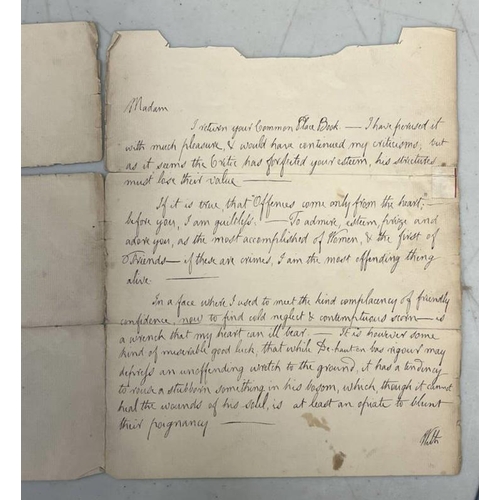 Madam
I return your Common Place Book — I have perused it
with much pleasure, & would have continued my criticisms, but
as it seems the Critic has forfeited your esteem, his strictures
must lose their value —
If it is true, that "Offences come only from the heart, —
before you, I am guiltless. — To admire, esteem, prize and
adore you, as the most accomplished of Women, & the first of
Friends — if these are crimes, I am the most offending thing
alive.
In a face where I used to meet the kind complacency of friendly
confidence, now to find cold neglect & contemptuous scorn — is
a wrench that my heart can ill bear. — It is however some
kind of miserable good luck, that while De-haut en bas rigour may
depress an unoffending wretch to the ground, it has a tendency
to rouse a stubborn something in his bosom, which, though it cannot
heal the wounds of his soul, is at least an opiate to blunt
their poignancy —
With